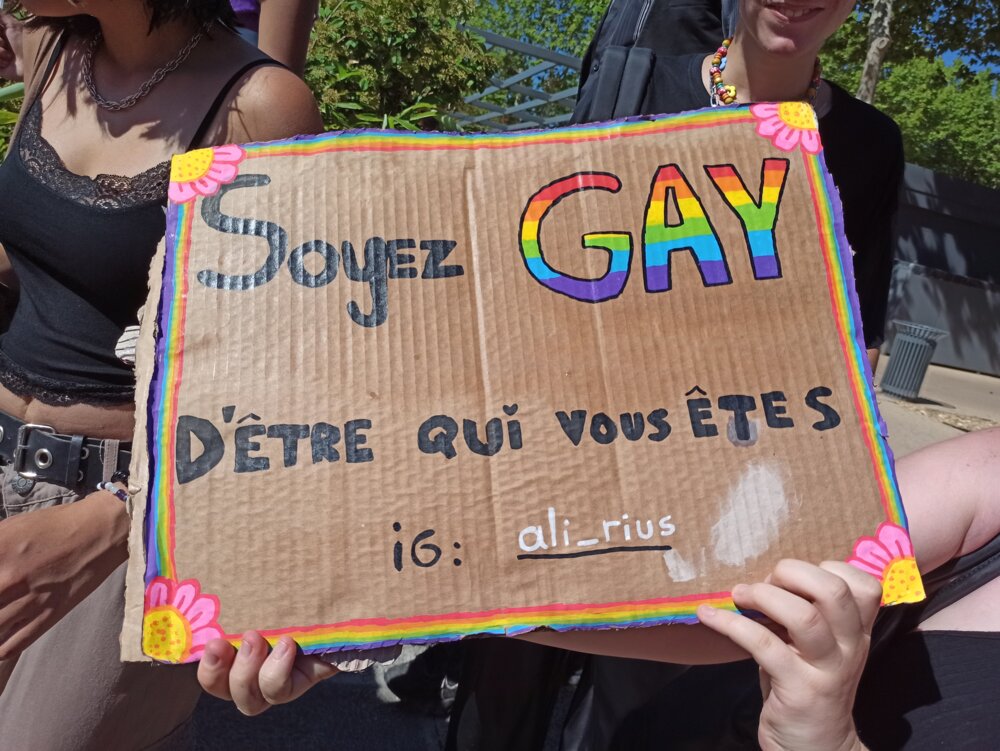 Soyez GAY
D'ÊTRE QUi VOUS ÊTES
iG: ali_rius